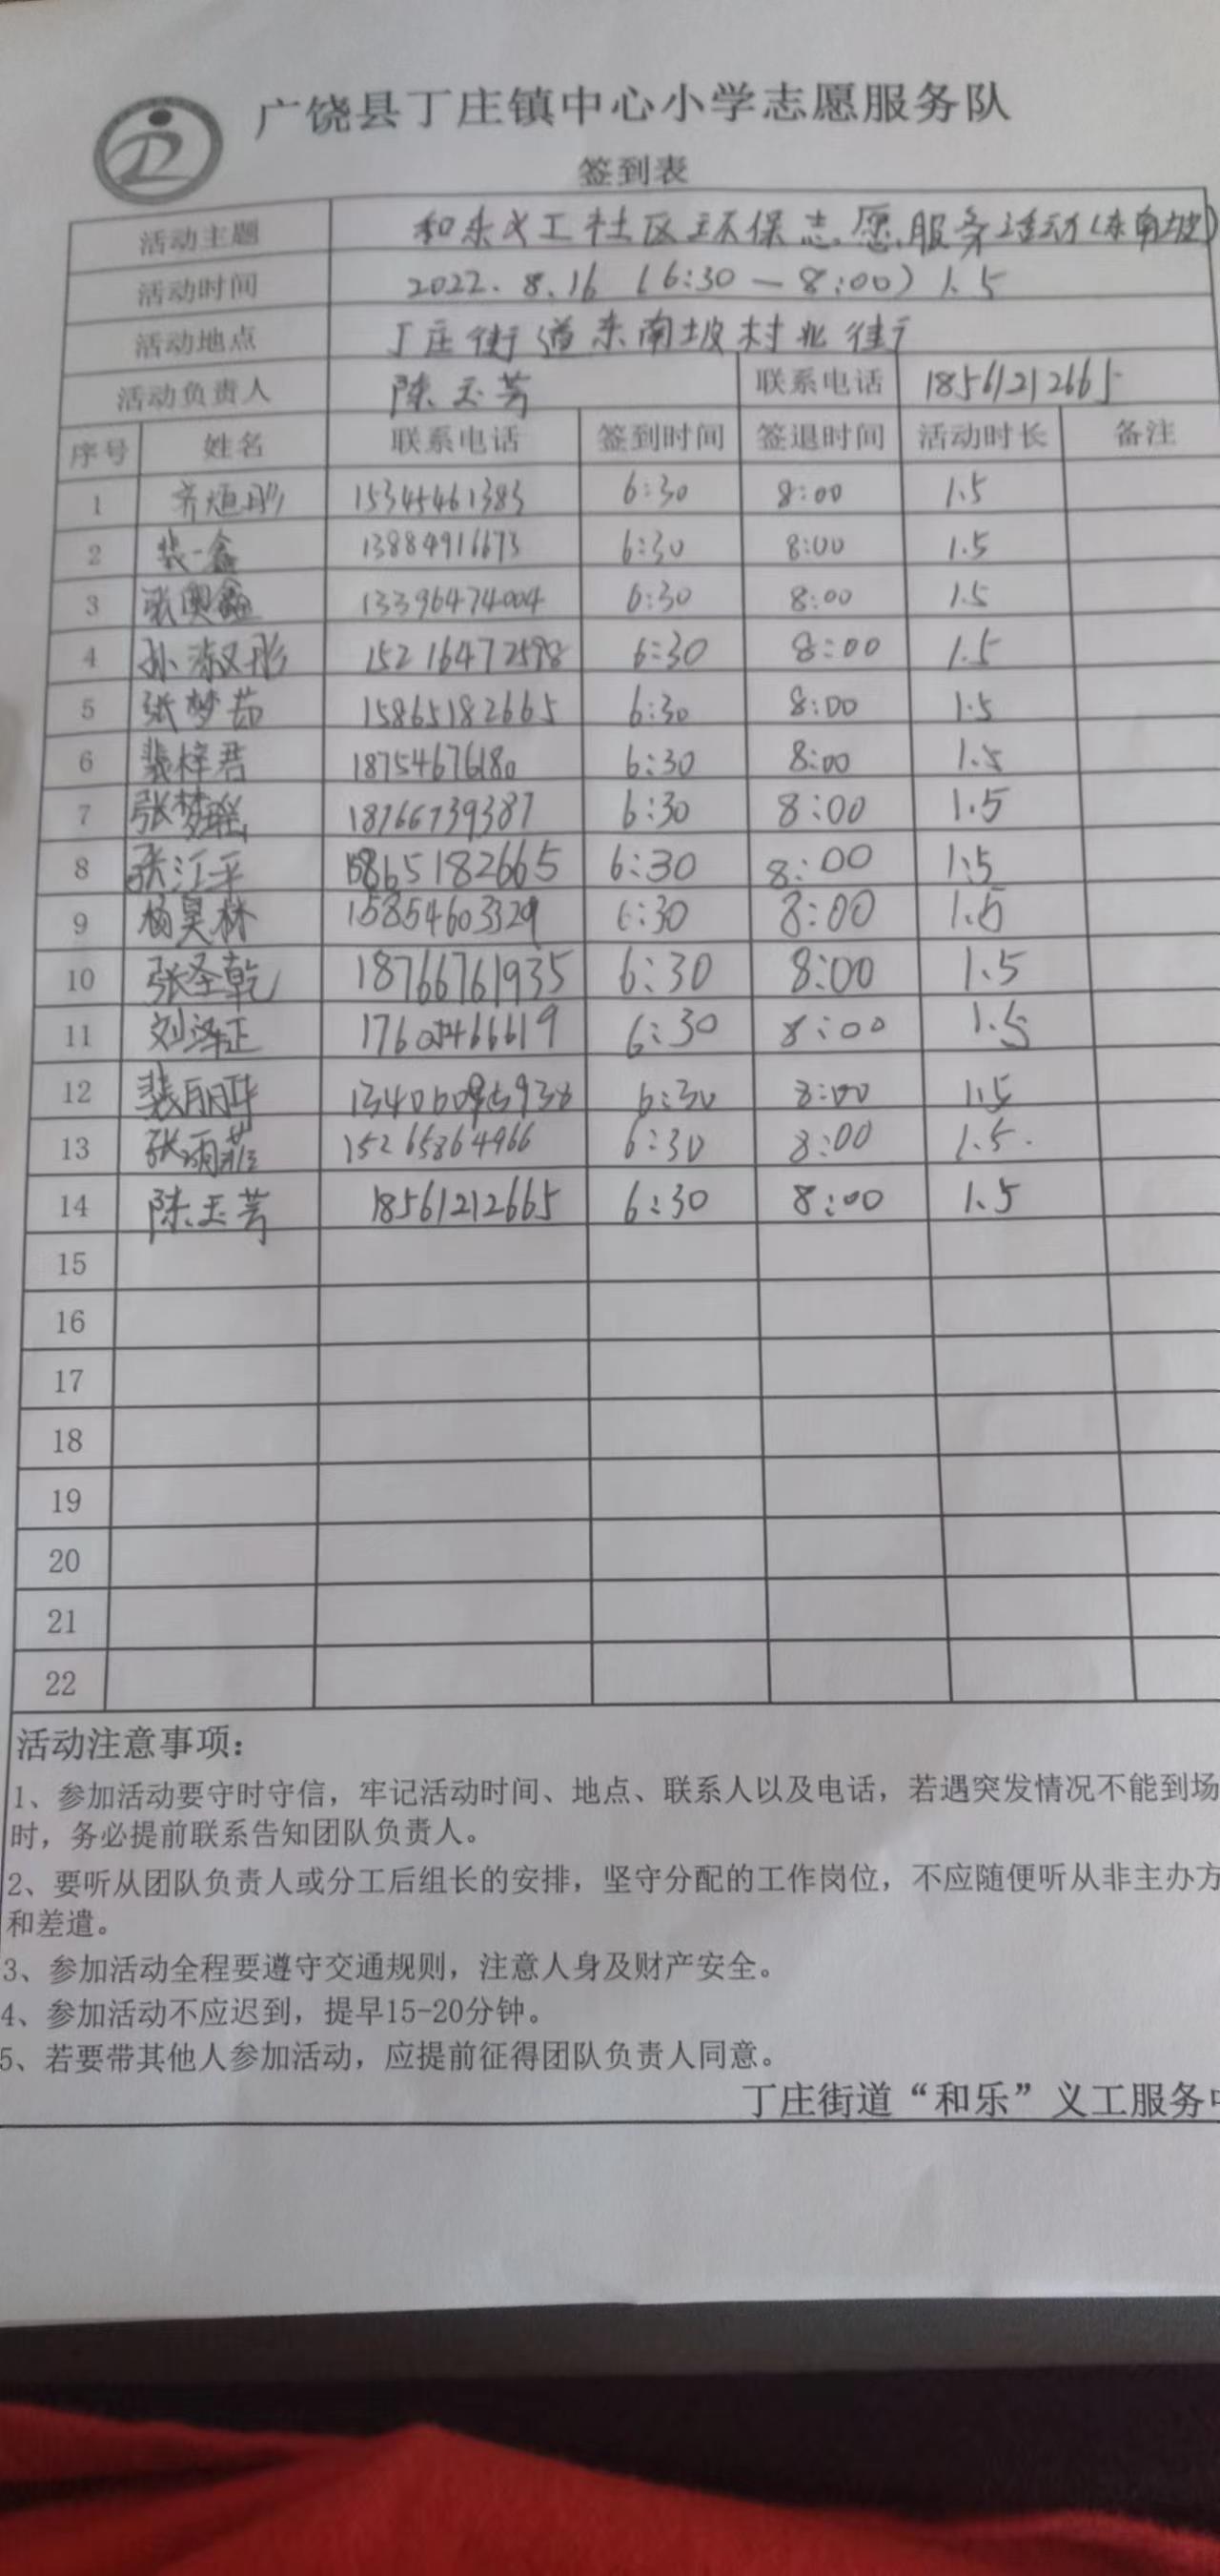 广饶县丁庄镇中心小学志愿服务队
签到表
活动主题 和乐义工社区环保志愿服务活动(东南坡)
活动时间 2022.8.16 (6:30—8:00) 1.5
活动地点 丁庄街道东南坡村北街
活动负责人 陈玉芳 联系电话 18561212665
序号 姓名 联系电话 签到时间 签退时间 活动时长 备注
1 15345461383 6:30 8:00 1.5
2 裴一鑫 13884916673 6:30 8:00 1.5
3 张奥鑫 13396474004 6:30 8:00 1.5
4 孙淑彤 15216472598 6:30 8:00 1.5
5 张梦茹 15865182665 6:30 8:00 1.5
6 裴梓君 18754676180 6:30 8:00 1.5
7 张梦瑶 18766739387 6:30 8:00 1.5
8 张江平 15865182665 6:30 8:00 1.5
9 杨昊林 15854603329 6:30 8:00 1.5
10 张圣乾 18766761935 6:30 8:00 1.5
11 刘泽正 6:30 8:00 1.5
12 裴丽华 6:30 8:00 1.5
13 张雨菲 15265864966 6:30 8:00 1.5.
14 陈玉芳 18561212665 6:30 8:00 1.5
15
16
17
18
19
20
21
22
活动注意事项：
1、参加活动要守时守信，牢记活动时间、地点、联系人以及电话，若遇突发情况不能到场
时，务必提前联系告知团队负责人。
2、要听从团队负责人或分工后组长的安排，坚守分配的工作岗位，不应随便听从非主办方
和差遣。
3、参加活动全程要遵守交通规则，注意人身及财产安全。
4、参加活动不应迟到，提早15-20分钟。
5、若要带其他人参加活动，应提前征得团队负责人同意。
丁庄街道“和乐”义工服务中